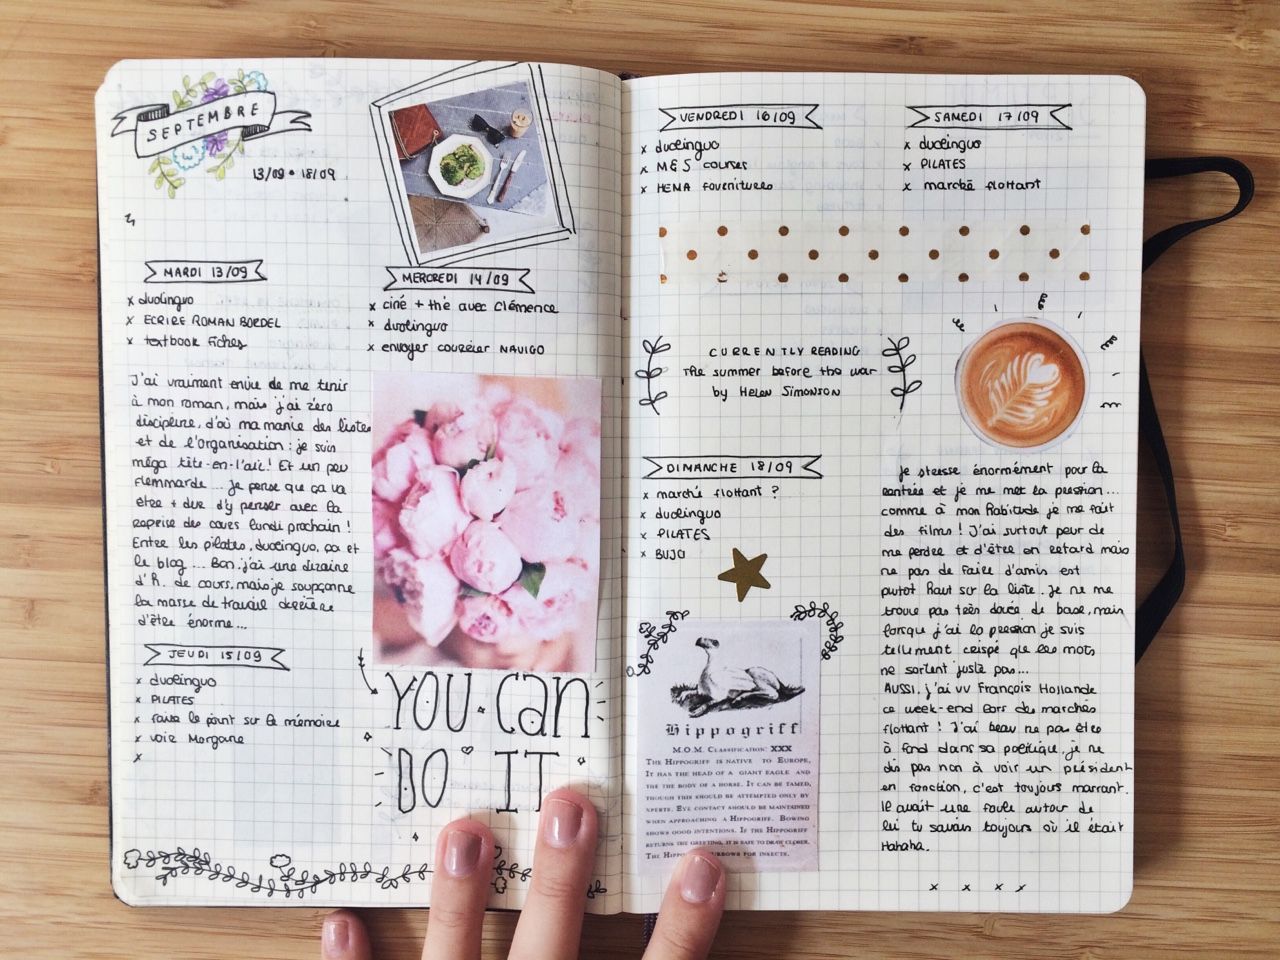 SEPTEMBRE
13/09 • 18/09
MARDI 13/09
x duolinguo
x ECRIRE ROMAN BORDEL
x textbook fiches
J'ai vraiment envie de me tenir
à mon roman, mais j'ai zéro
discipline, d'où ma manie des listes
et de l'organisation : je suis
méga tête-en-l'air ! Et un peu
flemmarde ... Je pense que ça va
être + dur d'y penser avec la
reprise des cours lundi prochain !
Entre les pilates, duolinguo, ça et
le blog ... Bon, j'ai une dizaine
d'h. de cours, mais je soupçonne
la masse de travail derrière
d'être énorme ...
JEUDI 15/09
x duolinguo
x PILATES
x faire le point sur le mémoire
x voir Morgane
x
MERCREDI 14/09
x ciné + thé avec Clémence
x duolinguo
x envoyer courrier NAVIGO
YOU CAN
DO IT
VENDREDI 16/09
x duolinguo
x M&S courses
x HEMA fournitures
SAMEDI 17/09
x duolinguo
x PILATES
x marché flottant
CURRENTLY READING
The summer before the war
by Helen Simonson
DIMANCHE 18/09
x marché flottant ?
x duolinguo
x PILATES
x BUJO
Hippogriff
M.O.M. Classification: XXX
The Hippogriff is native to Europe,
It has the head of a giant eagle and
the the body of a horse. It can be tamed,
though this should be attempted only by
xperts. Eye contact should be maintained
when approaching a Hippogriff. Bowing
shows good intentions. If the Hippogriff
returns the greeting, it is safe to draw closer.
The Hippog burrows for insects.
Je stresse énormément pour la
rentrée et je me met la pression...
comme à mon habitude je me fait
des films ! J'ai surtout peur de
me perdre et d'être en retard mais
ne pas de faire d'amis est
putot haut sur la liste. Je ne me
trouve pas très douée de base, main
lorsque j'ai la pression je suis
tellement crispé que les mots
ne sortent juste pas...
AUSSI, j'ai vu François Hollande
ce week-end lors des marchés
flottant ! J'ai beau ne pas être
à fond dans sa politique, je ne
dis pas non à voir un président
en fonction, c'est toujours marrant.
Il avait une foule autour de
lui tu savais toujours où il était
Hahaha.
x x x x